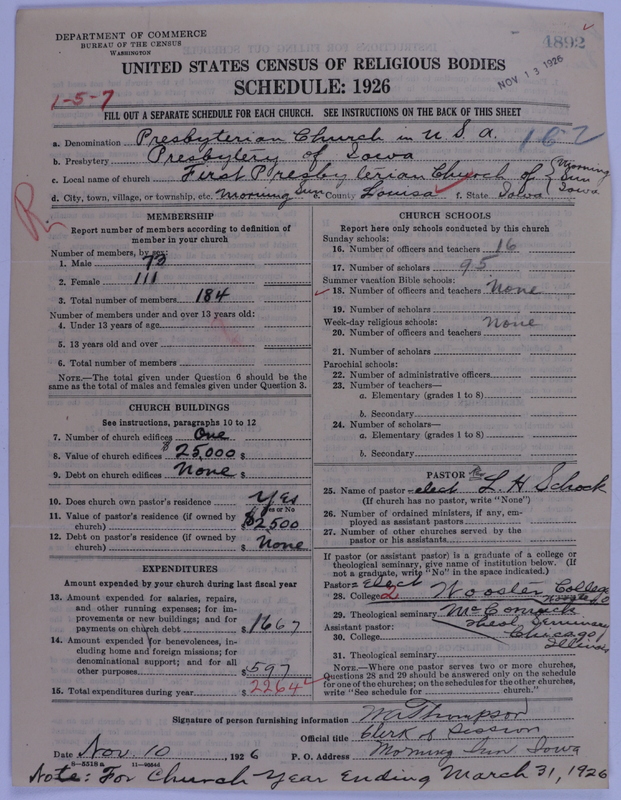 DEPARTMENT OF COMMERCE
BUREAU OF THE CENSUS
WASHINGTON
4892
NOV 13 1926
UNITED STATES CENSUS OF RELIGIOUS BODIES
SCHEDULE: 1926
1-5-7
FILL OUT A SEPARATE SCHEDULE FOR EACH CHURCH. SEE INSTRUCTIONS ON THE BACK OF THIS SHEET
a. Denomination Presbyterian Church in U.S.A. 162
b. Presbytery Presbytery of Iowa
c. Local name of church First Presbyterian Church of { Morning Sun Iowa
d. City, town, village, or township, etc. Morning Sun e. County Louisa f. State Iowa
MEMBERSHIP
Report number of members according to definition of
member in your church
Number of members, by sex:
1. Male 73
2. Female 111
3. Total number of members 184
Number of members under and over 13 years old:
4. Under 13 years of age
5. 13 years old and over
6. Total number of members
NOTE.—The total given under Question 6 should be
same as the total of males and females given under Question 3.
CHURCH BUILDINGS
See instructions, paragraphs 10 to 12
7. Number of church edifices One
8. Value of church edifices $25,000 $
9. Debt on church edifices None $
10. Does church own pastor's residence Yes
Yes or No
11. Value of pastor's residence (if owned by
church) $2500
12. Debt on pastor's residence (if owned by
church) $ None
EXPENDITURES
Amount expended by your church during last fiscal year
13. Amount expended for salaries, repairs,
and other running expenses; for im-
provements or new buildings; and for
payments on church debt $1667
14. Amount expended for benevolences, in-
cluding home and foreign missions; for
denominational support; and for all
other purposes $597
15. Total expenditures during year $2264
CHURCH SCHOOLS
Report here only schools conducted by this church
Sunday schools:
16. Number of officers and teachers 16
17. Number of scholars 95
Summer vacation Bible schools:
18. Number of officers and teachers None
19. Number of scholars
Week-day religious schools: None
20. Number of officers and teachers
21. Number of scholars
Parochial schools:
22. Number of administrative officers
23. Number of teachers—
a. Elementary (grades 1 to 8)
b. Secondary
24. Number of scholars—
a. Elementary (grades 1 to 8)
b. Secondary
PASTOR
25. Name of pastor - elect L. H. Schock
(If church has no pastor, write "None")
26. Number of ordained ministers, if any, em-
ployed as assistant pastors
27. Number of other churches served by the
pastor or his assistants
If pastor (or assistant pastor) is a graduate of a college or
theological seminary, give name of institution below. (If
not a graduate, write "No" in the space indicated.)
Pastor: Elect
28. College 2 Wooster College
29. Theological seminary McCormick
Theol Seminary
Assistant pastor:
30. College Chicago,
Illinois
31. Theological seminary
NOTE.—Where one pastor serves two or more churches,
Questions 28 and 29 should be answered only on the schedule
for one of the churches; on the schedules for the other churches,
write "See schedule for church."
Signature of person furnishing information Wm Thompson
Official title Clerk of Session
Date Nov. 10, 1926 P. O. Address Morning Sun Iowa
8-5318a
Note: For Church Year Ending March 31, 1926